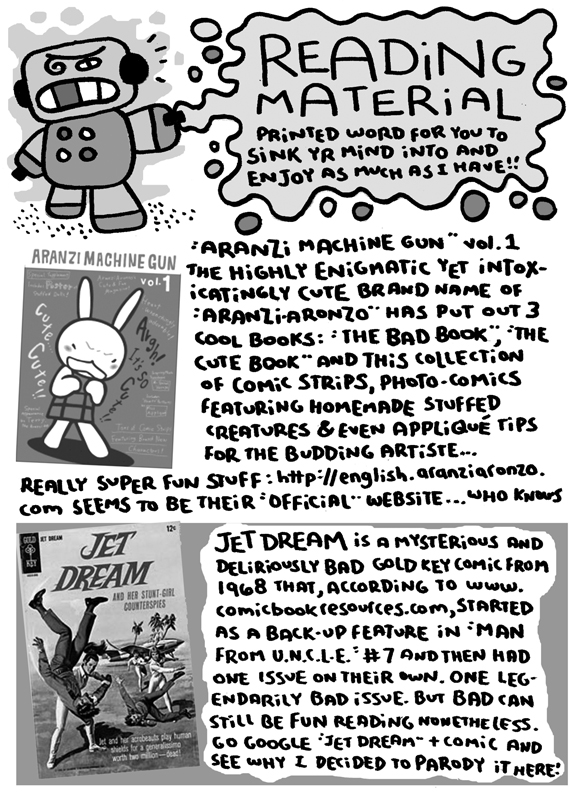 READING
MATERIAL
PRINTED WORD FOR YOU TO
SINK YR MIND INTO AND
ENJOY AS MUCH AS I HAVE!!
ARANZI MACHINE GUN
vol.1
Cute..
Cute!!
Augh!
It's so
Cute!!
"ARANZI MACHINE GUN" vol.1
THE HIGHLY ENIGMATIC YET INTOX-
ICATINGLY CUTE BRAND NAME OF
"ARANZI-ARONZO" HAS PUT OUT 3
COOL BOOKS: "THE BAD BOOK", "THE
CUTE BOOK" AND THIS COLLECTION
OF COMIC STRIPS, PHOTO-COMICS
FEATURING HOMEMADE STUFFED
CREATURES & EVEN APPLIQUÉ TIPS
FOR THE BUDDING ARTISTE...
REALLY SUPER FUN STUFF: http://english.aranziaronzo.
com SEEMS TO BE THEIR "OFFICIAL" WEBSITE... WHO KNOWS
GOLD KEY
JET DREAM
12¢
JET
DREAM
AND HER STUNT-GIRL
COUNTERSPIES
Jet and her acrobeauts play human
shields for a generalissimo
worth two million—dead!
JET DREAM IS A MYSTERIOUS AND
DELIRIOUSLY BAD GOLD KEY COMIC FROM
1968 THAT, ACCORDING TO www.
comicbookresources.com, STARTED
AS A BACK-UP FEATURE IN "MAN
FROM U.N.C.L.E." #7 AND THEN HAD
ONE ISSUE ON THEIR OWN. ONE LEG-
ENDARILY BAD ISSUE. BUT BAD CAN
STILL BE FUN READING NONETHELESS.
GO GOOGLE "JET DREAM" + COMIC AND
SEE WHY I DECIDED TO PARODY IT HERE!